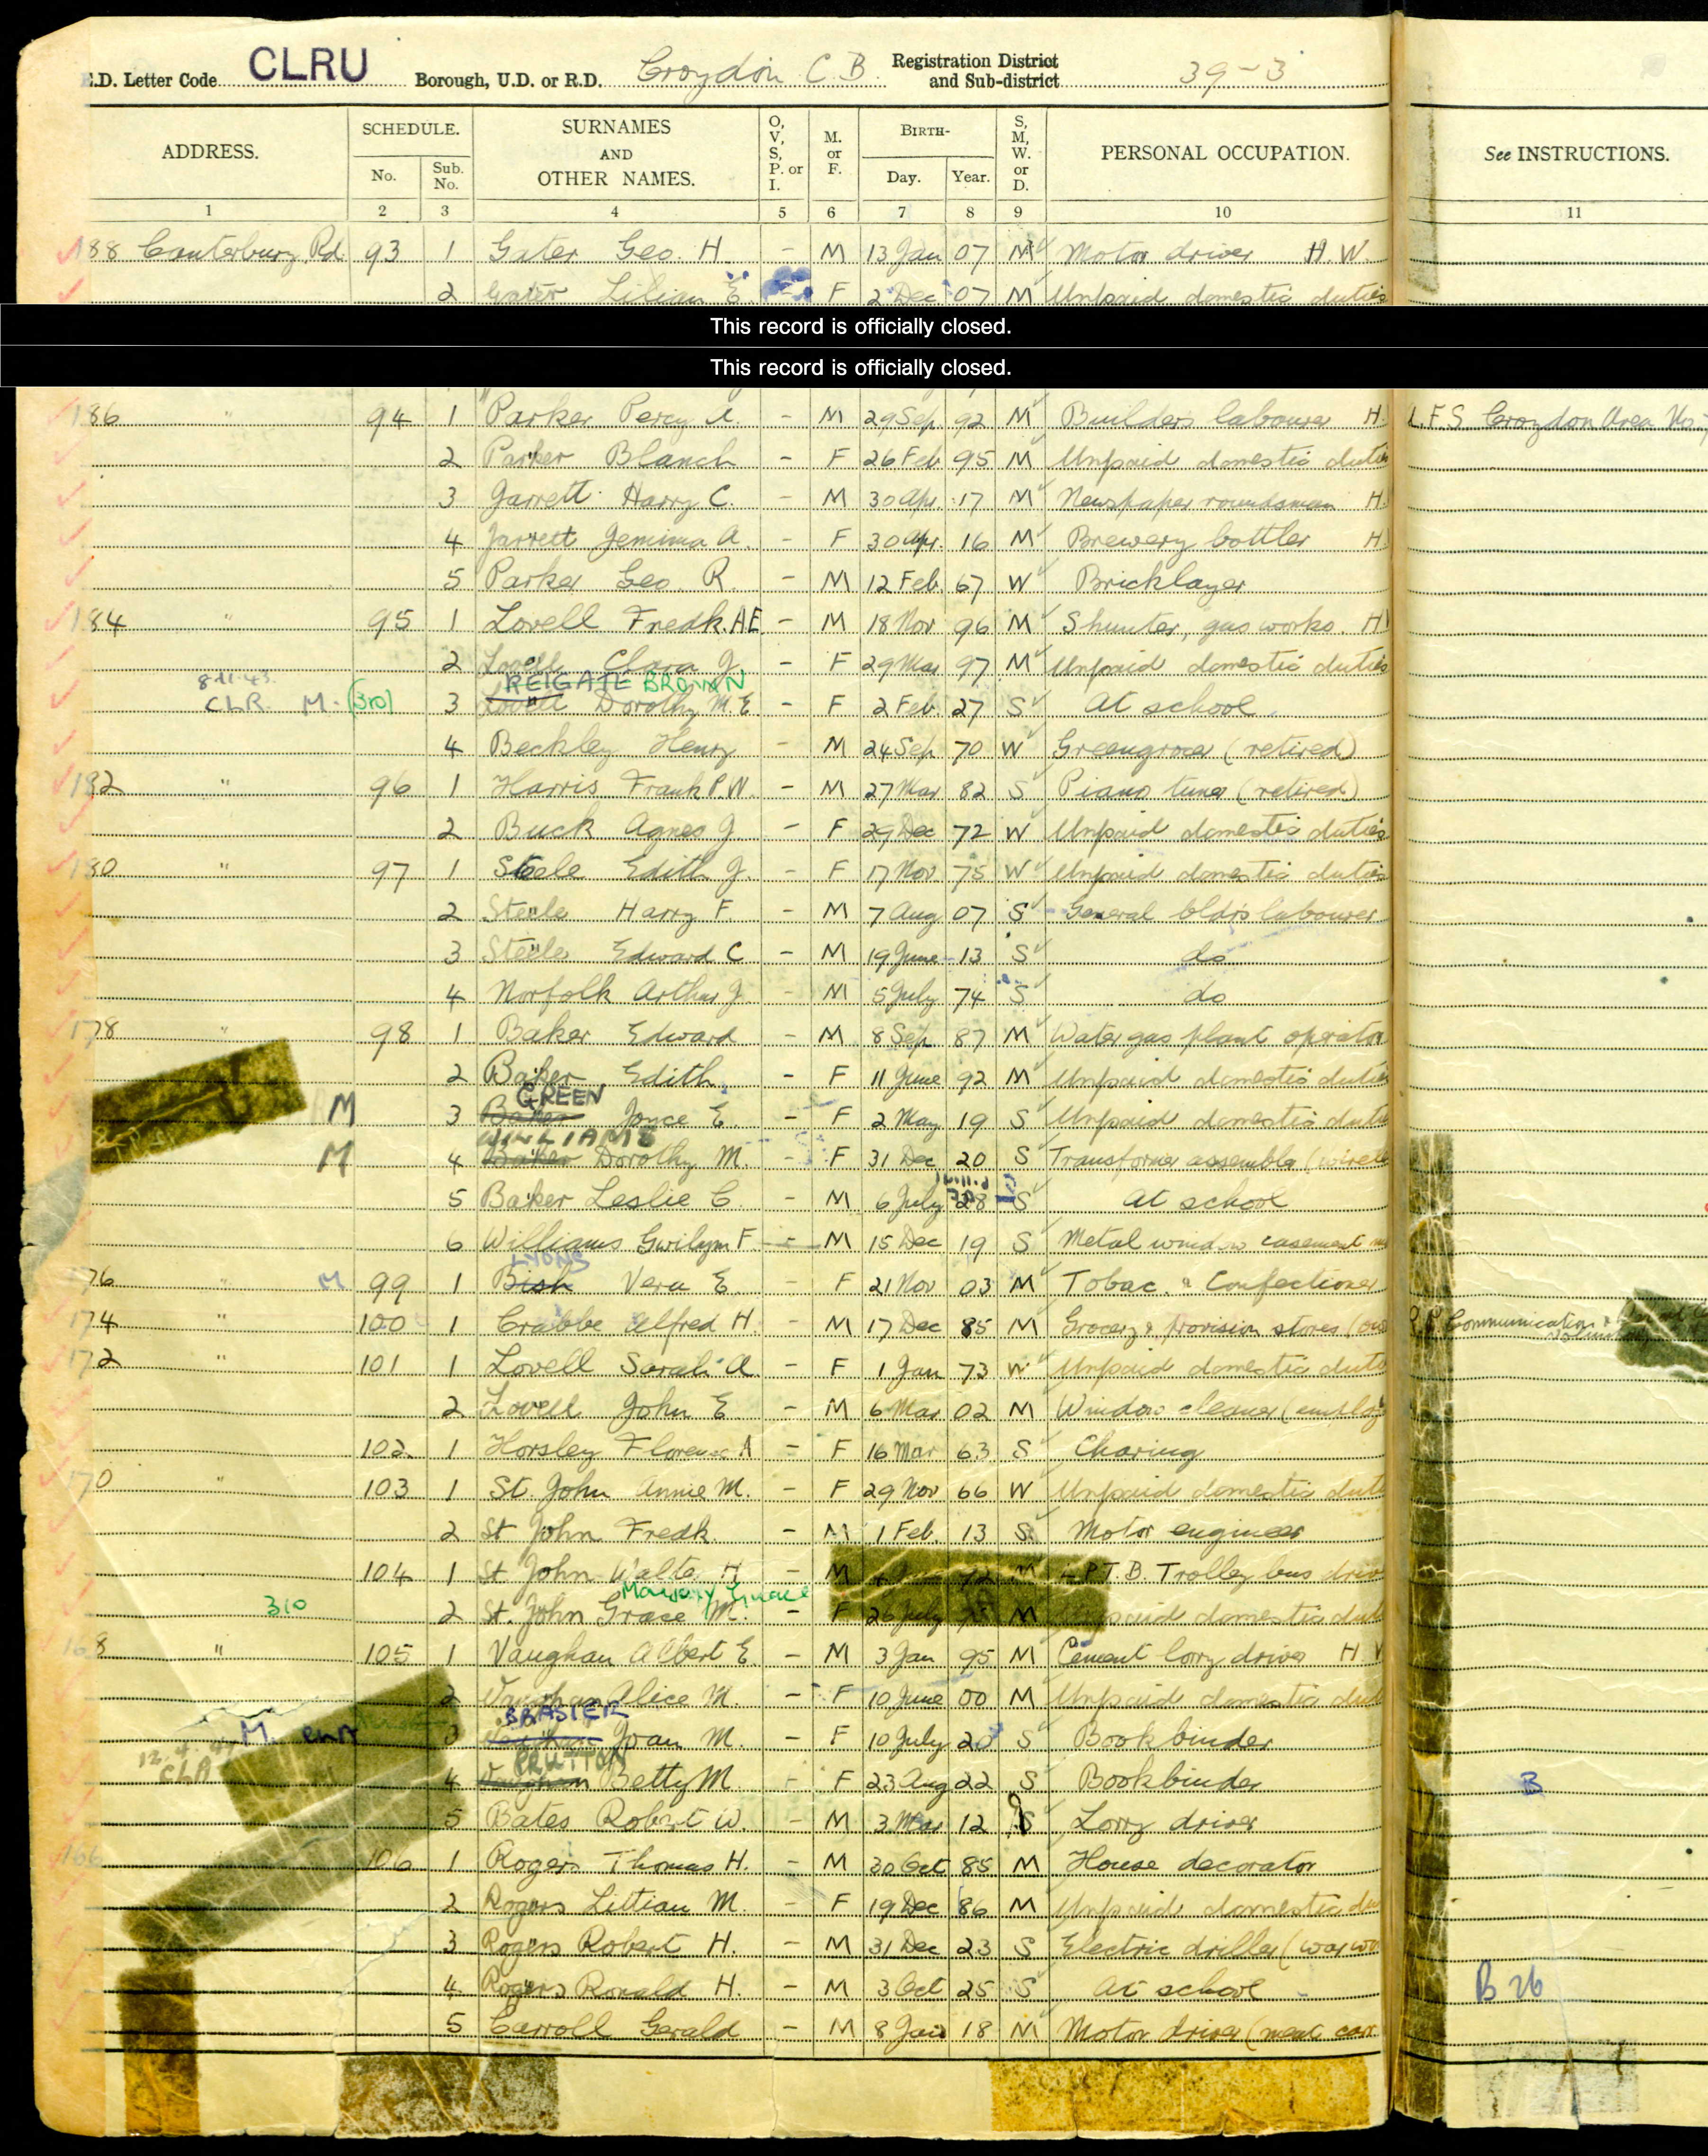 E.D. Letter Code CLRU Borough, U.D. or R.D. Croydon C.B. Registration District and Sub-district 39-3
ADDRESS. SCHEDULE. No. Sub. No. SURNAMES AND OTHER NAMES. O, V, S, P. or I. M. or F. BIRTH- Day. Year. S, M, W. or D. PERSONAL OCCUPATION. See INSTRUCTIONS.
1 2 3 4 5 6 7 8 9 10 11
188 Canterbury Rd 93 1 Gater Geo. H. - M 13 Jan 07 M Motor driver H.W.
2 Gater Lilian E. - F 2 Dec 07 M Unpaid domestic duties
This record is officially closed.
This record is officially closed.
186 " 94 1 Parker Percy A. - M 29 Sep. 92 M Builders labourer H. L.F.S Croydon Area No.
2 Parker Blanch - F 26 Feb 95 M Unpaid domestic duties
3 Jarrett Harry C. - M 30 Apr. 17 M Newspaper roundsman H
4 Jarrett Jemima A. - F 30 Apr. 16 M Brewery bottler H
5 Parker Geo. R. - M 12 Feb. 67 W Bricklayer
184 " 95 1 Lovell Fredk. A E - M 18 Nov 96 M Shunter, gas works. H
2 Lovell Clara J. - F 29 Mar 97 M Unpaid domestic duties
8.11.43. REIGATE BROWN
CLR. M. (310) 3 Lovell Dorothy M. E - F 2 Feb. 27 S At school
4 Beckley Henry - M 24 Sep 70 W Greengrocer (retired)
182 " 96 1 Harris Frank P. W. - M 27 Mar 82 S Piano tuner (retired)
2 Buck Agnes J - F 29 Dec 72 W Unpaid domestic duties
180 " 97 1 Steele Edith J. - F 17 Nov. 75 W Unpaid domestic duties
2 Steele Harry F. - M 7 Aug 07 S General bldrs labourer
3 Steele Edward C - M 19 June 13 S do
4 Norfolk Arthur J. - M 5 July 74 S do
178 " 98 1 Baker Edward - M 8 Sep 87 M Water gas plant operator
2 Baker Edith - F 11 June 92 M Unpaid domestic duties
GREEN
M 3 Baker Joyce E. - F 2 May 19 S Unpaid domestic duties
WILLIAMS
M 4 Baker Dorothy M. - F 31 Dec 20 S Transformer assembler (wirele
5 Baker Leslie C. - M 6 July 28 S At school
6 Williams Gwilym F. - M 15 Dec 19 S Metal window casement
LYONS
176 " M 99 1 Bish Vera E. - F 21 Nov 03 M Tobac. & Confectioner
174 " 100 1 Crabbe Alfred H. - M 17 Dec 85 M Grocery & provision stores (own Communication
172 " 101 1 Lovell Sarah A. - F 1 Jan 73 W Unpaid domestic duties
2 Lovell John E - M 6 Mar 02 M Window cleaner (employ
102 1 Horsley Florence A - F 16 Mar 63 S Charing
170 " 103 1 St. John Annie M. - F 29 Nov 66 W Unpaid domestic duties
2 St John Fredk. - M 1 Feb. 13 S. Motor engineer
104 1 St. John Walter H - M M L.P.T.B. Trolley bus driv
Marjory Grace
310 2 St. John Grace M. - F 26 July M Unpaid domestic duti
168 " 105 1 Vaughan Albert E. - M 3 Jan 95 M Cement lorry driver H V
2 Vaughan Alice M. - F 10 June 00 M Unpaid domestic duti
BRASIER
M. 3 Vaughan Joan M. - F 10 July 20 S Bookbinder
PRUTTON
CLA 4 Vaughan Betty M - F 23 Aug 22 S Bookbinder B
5 Bates Robert W. - M 3 Mar 12 S Lorry driver
166 106 1 Rogers Thomas H. - M 30 Oct 85 M House decorator
2 Rogers Lillian M. - F 19 Dec 86 M Unpaid domestic du
3 Rogers Robert H. - M 31 Dec 23 S Electric driller (war wo
4 Rogers Ronald H. - M 3 Oct 25 S At school B 26
5 Carroll Gerald - M 8 Jan 18 M Motor driver (meat carr